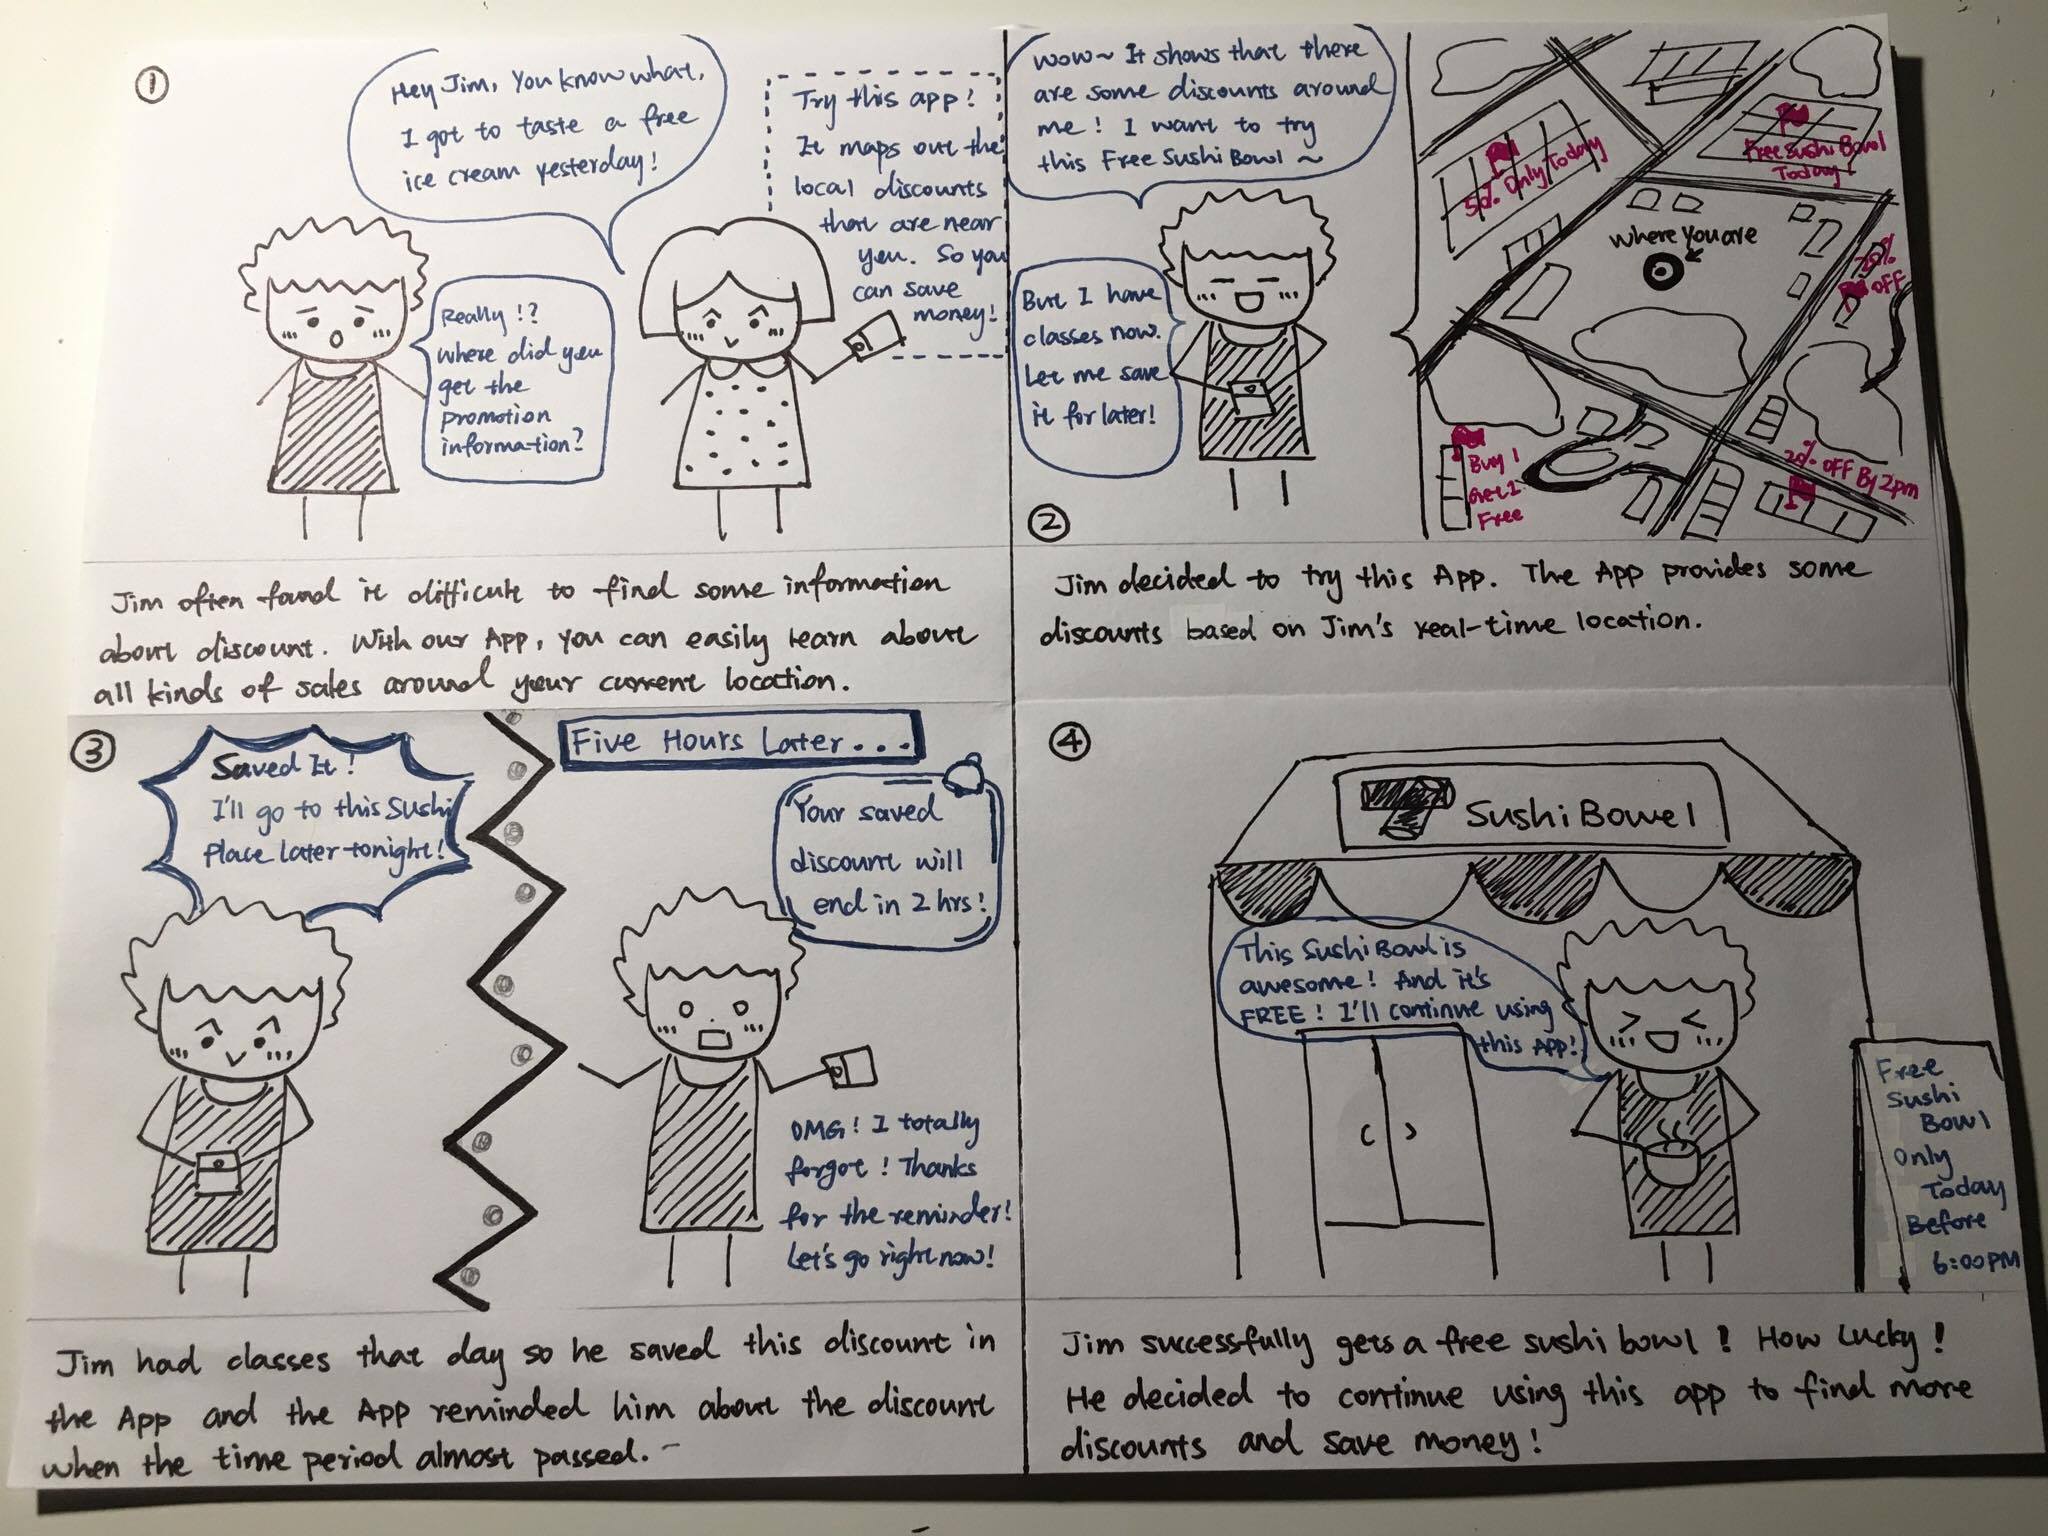 ①
Hey Jim, You know what,
I got to taste a free
ice cream yesterday!
Really!?
where did you
get the
promotion
information?
Try this app!
It maps out the
local discounts
that are near
you. So you
can save
money!
Jim often found it difficult to find some information
about discount. With our App, you can easily learn about
all kinds of sales around your current location.
②
wow~ It shows that there
are some discounts around
me! I want to try
this Free Sushi Bowl~
But I have
classes now.
Let me save
it for later!
50% Only Today
Free Sushi Bowl
Today!
where you are
20%
OFF
Buy 1
Get 1
Free
20% OFF By 2pm
Jim decided to try this App. The App provides some
discounts based on Jim's real-time location.
③
Saved It!
I'll go to this Sushi
Place Later tonight!
Five Hours Later...
Your saved
discount will
end in 2 hrs!
OMG! I totally
forgot! Thanks
for the reminder!
Let's go right now!
Jim had classes that day so he saved this discount in
the App and the App reminded him about the discount
when the time period almost passed.
④
Sushi Bowel
This Sushi Bowl is
awesome! And it's
FREE! I'll continue using
this App!
Free
Sushi
Bowl
Only
Today
Before
6:00PM
Jim successfully gets a free sushi bowl! How Lucky!
He decided to continue using this app to find more
discounts and save money!